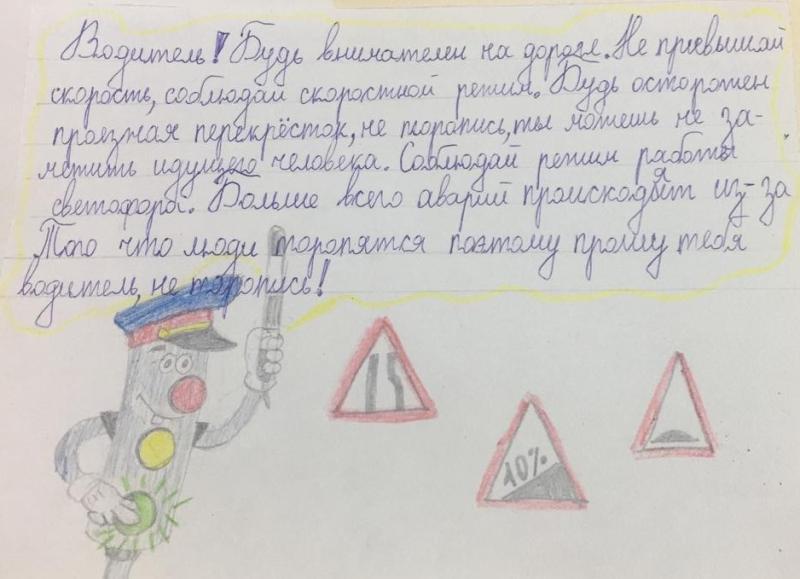 Водитель! Будь внимателен на дороге. Не превышай
скорость, соблюдай скоростной режим. Будь осторожен
проезжая перекрёсток, не торопись, ты можешь не за-
метить идущего человека. Соблюдай режим работы
светофора. Больше всего аварий происходят из-за
Того что люди торопятся поэтому прошу тебя
водитель, не торопись!
10%